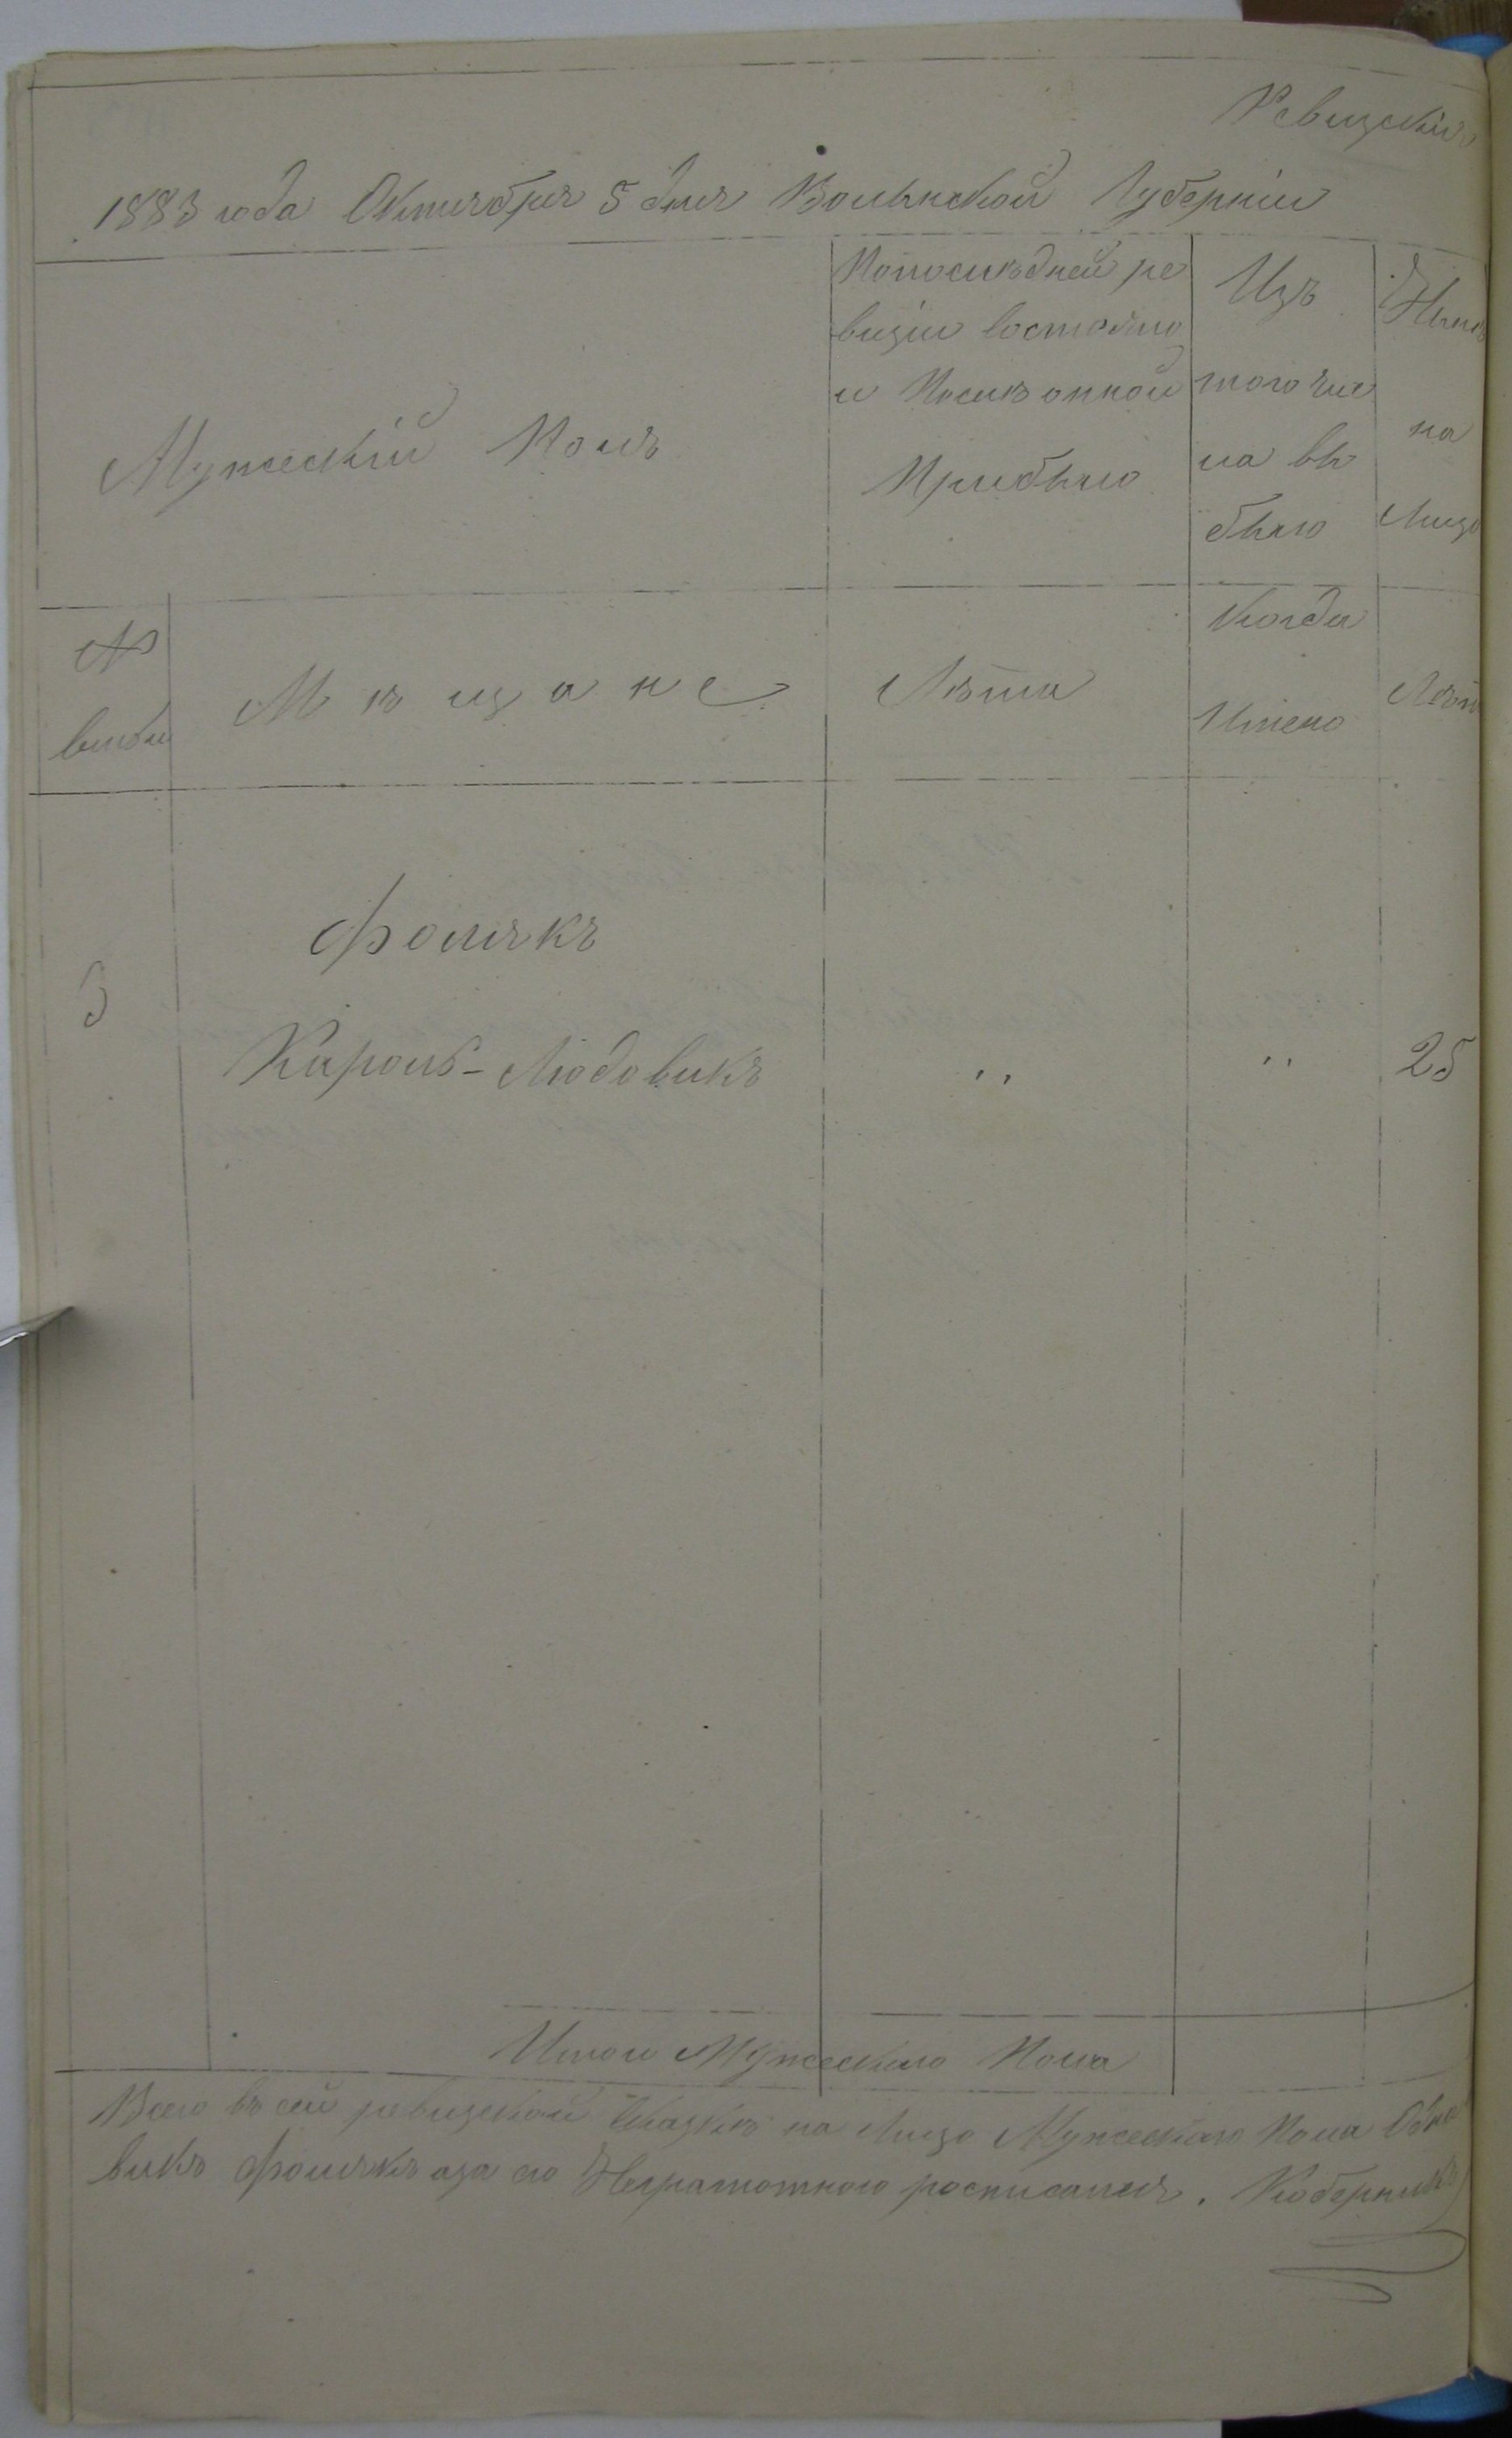 Ревизскія
1883 года Октября 5 дня Волынской Губерніи
Мужескій Полъ
Попослѣдней ре
визіи состояло
и После оной
Прибыло
Изъ
того чис
ла вы
было
Нынѣ
на
Лицо
№
Мѣщане
Лѣта
Когда
Имено
Лѣт
3
Фолякъ
Кароль-Людовикъ
"
"
25
Итого Мужескаго Пола
Всего въ сей ревизской Сказкѣ на Лицо Мужескаго Пола Одна
викъ Фолякъ аза его Неграмотного росписался. Коберникъ